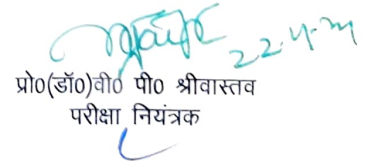 22.4.24
प्रो0(डॉ0)वी0 पी0 श्रीवास्तव
परीक्षा नियंत्रक